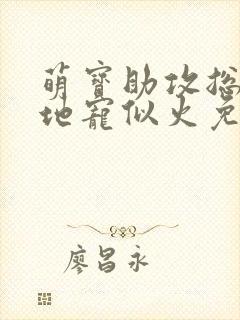 萌寶助攻總
地寵似火免
廖昌永